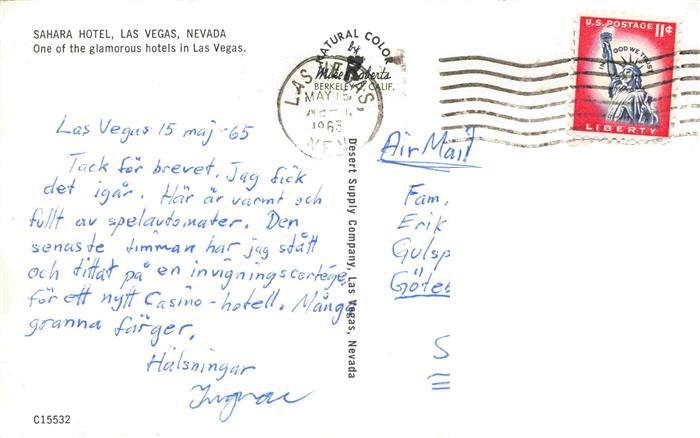 SAHARA HOTEL, LAS VEGAS, NEVADA
One of the glamorous hotels in Las Vegas.
NATURAL COLOR
by
Mike Roberts
BERKELEY 2, CALIF.
LAS VEGAS,
MAY 15
1965
NEV
U.S. POSTAGE 11¢
IN GOD WE TRUST
LIBERTY
Las Vegas 15 maj -65
Tack för brevet. Jag fick
det igår. Här är varmt och
fullt av spelautomater. Den
senaste timman har jag stått
och tittat på en invigningscortège
för ett nytt Casino-hotell. Många
granna färger.
Hälsningar
Desert Supply Company, Las Vegas, Nevada
Air Mail
Fam.
Erik
Gulsp
Göte
S
C15532